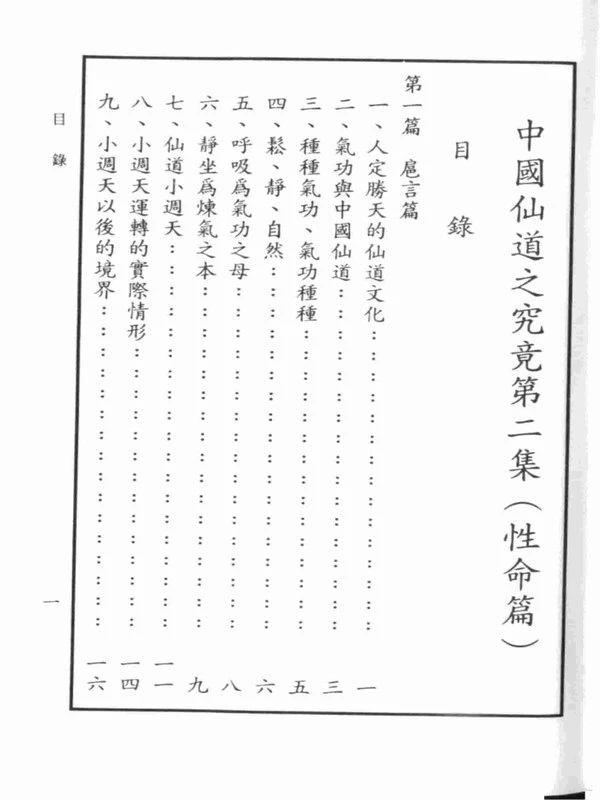 中國仙道之究竟第二集（性命篇）
目錄
第一篇 扈言篇
一、人定勝天的仙道文化：：：：：：：：：：：：：：一
二、氣功與中國仙道：：：：：：：：：：：：：：：：三
三、種種氣功、氣功種種：：：：：：：：：：：：：：五
四、鬆、靜、自然：：：：：：：：：：：：：：：：：六
五、呼吸爲氣功之母：：：：：：：：：：：：：：：：八
六、靜坐爲煉氣之本：：：：：：：：：：：：：：：：九
七、仙道小週天：：：：：：：：：：：：：：：：：：一一
八、小週天運轉的實際情形：：：：：：：：：：：：：一四
九、小週天以後的境界：：：：：：：：：：：：：：：一六
目錄
一